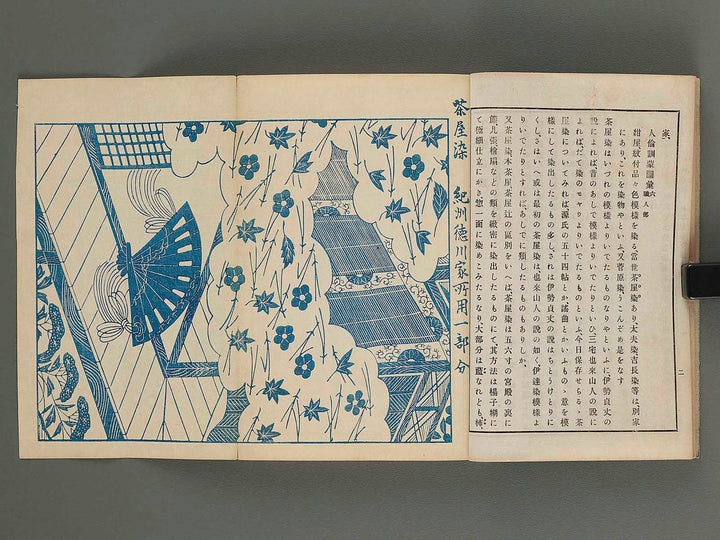 家、
人倫訓蒙圖彙職人部
紺屋紋付品々色模様を染る當世茶屋染あり太夫染、吉長染等は、別家
にあり、これを染物やといふ、又菅原染、うこんぞめ是をなす
茶屋染はいづれの模様よりいでたるものなりやといふに伊勢貞丈の
說によれば昔のあしで模樣よりいでたりといひ、三宅也來山人の說に
よれば、だて染のモヤウよりいでたるものといふ、今日保存せらるゝ茶
屋染についてみれば源氏の五十四帖とか、謠曲とかいふものゝ意を模
樣にして染出したるもの多し、されは伊勢貞丈の說はちとうけとりに
くし、さはいへ或は最初の茶屋染は也來山人の說の如く伊達染模樣よ
りいでたりとすれば、あしでに類したるものもありしか、
又茶屋染、本茶屋、茶屋辻の區別をいへば、茶屋染は五六寸の宮殿の裏に
几張、檜扇などの類を緻密に染出したるものにて、其方法は楊子糊に
て極細仕立にかき惣一面に染めこみたるなり大部分は藍なれども、
二
茶屋染 紀州徳川家所用一部分